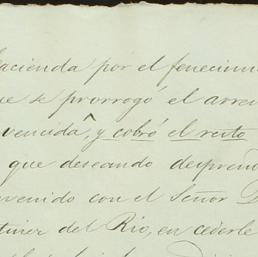 hacienda por el fenecim
ue se prorrogó el arre
vencida, y cobró el resto
que deseando despren
venido con el Señor D
tiner del Rio, en cederle